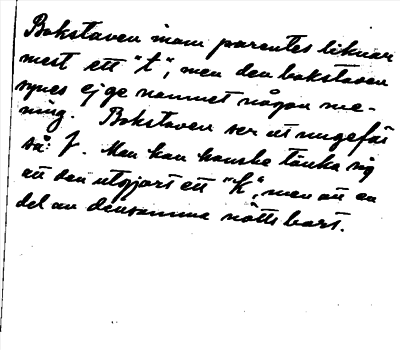 Bokstaven inom parentes liknar
mest ett "t", men den bokstaven
synes ej ge namnet någon me-
ning. Bokstaven ser ut ungefär
så: f. Man kan kanske tänka sig
att den utgjort ett "k", men att en
del av densamma nötts bort.